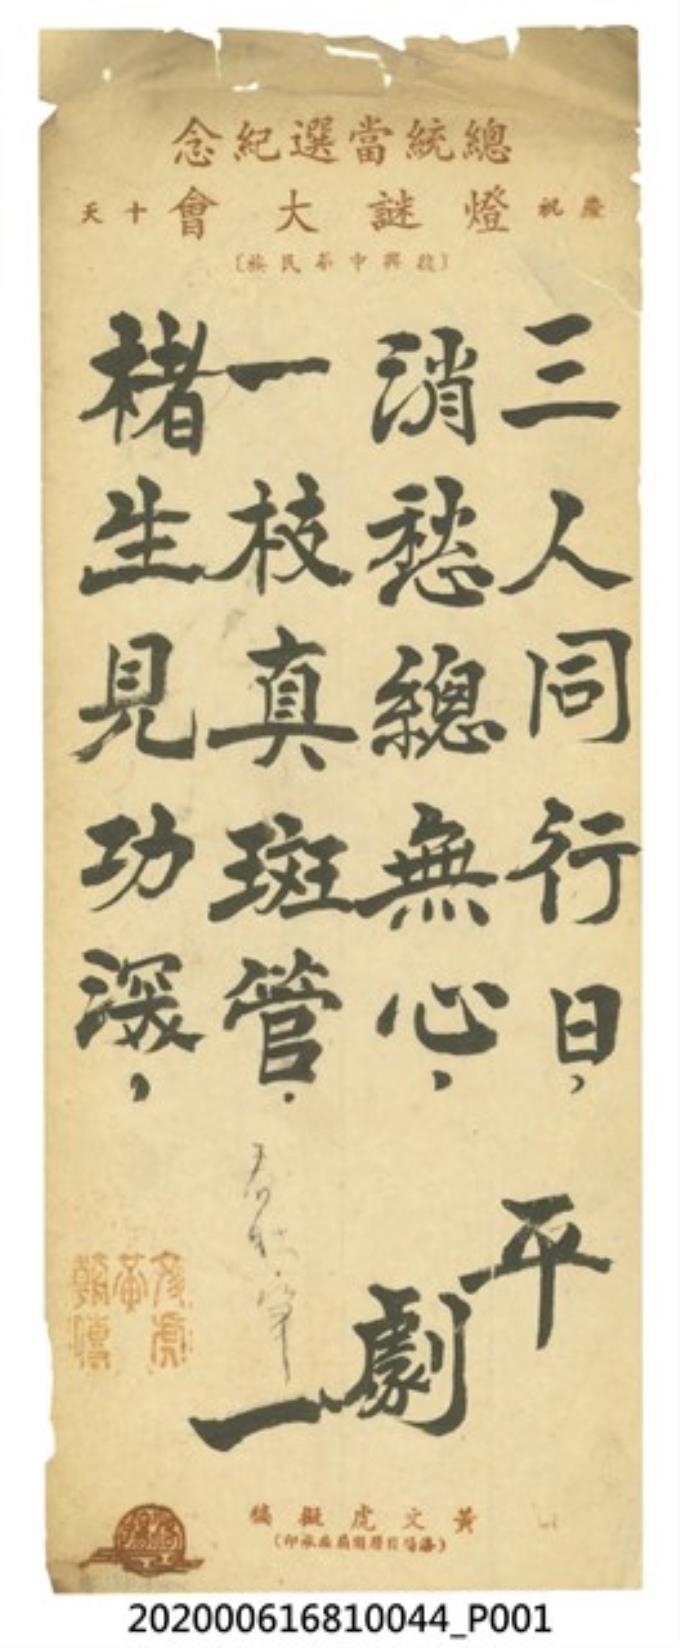 總統當選紀念
慶祝燈謎大會十天
〔復興中華民族〕
三人同行日，
消愁總無心，
一枝真斑管．
褚生見功深，
平劇一
春秋筆
黃文虎擬稿
202000616810044_P001